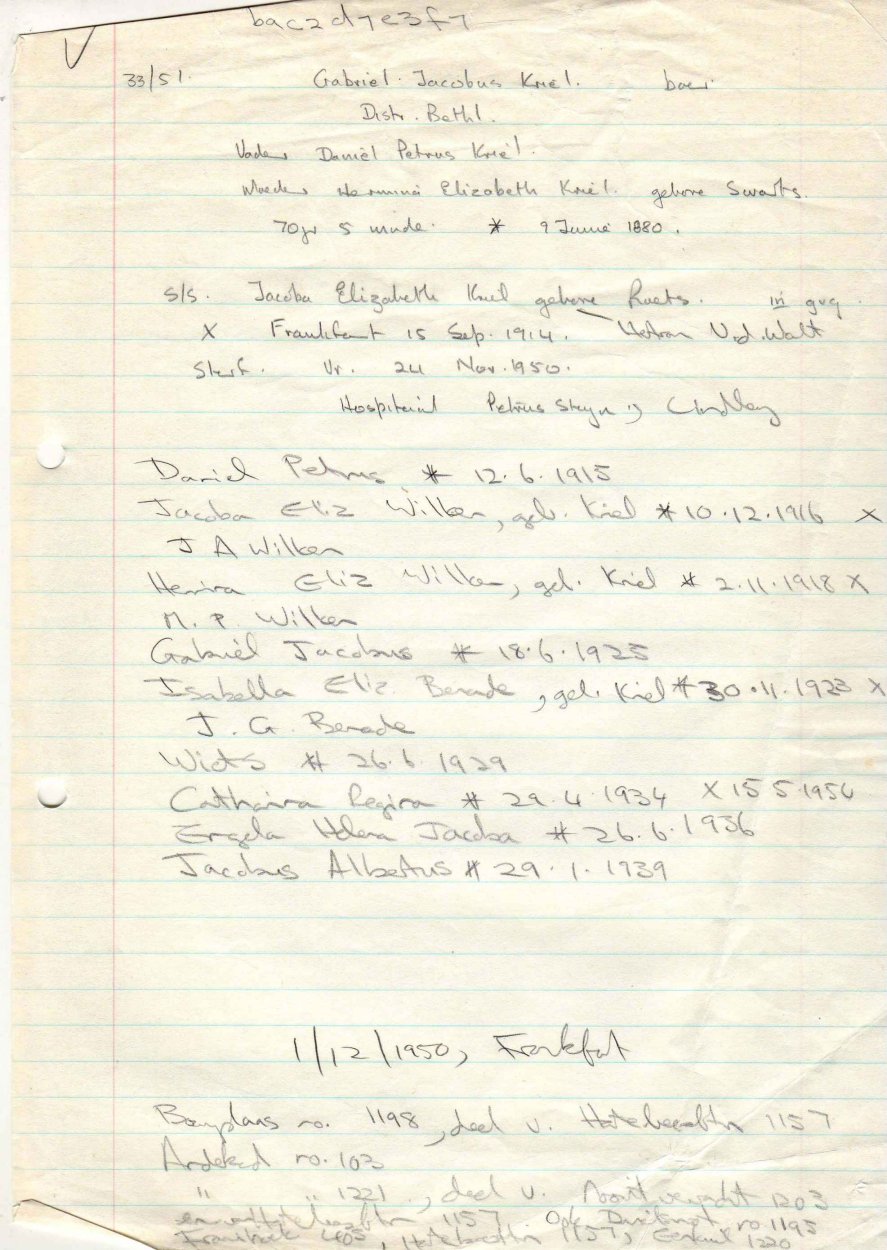 bac2d7e3f7
33/51. Gabriel Jacobus Kriel. boer
Distr. Bethl.
Vader Daniël Petrus Kriel.
Moeder Elizabeth Kriel. gebore Swarts.
70 jr 5 mnde. * 9 Junie 1880.
s/s. Jacoba Elizabeth Kriel gebore in gvg.
X Frankfort 15 Sep. 1914. v.d. Walt
Sterf. Vr. 24 Nov. 1950.
Hospitaal Petrus Steyn, Lindley
Daniel Petrus * 12.6.1915
Jacoba Eliz Wilken, geb. Kriel * 10.12.1916 X
J A Wilken
Eliz Wilken, geb. Kriel * 2.11.1918 X
M. P. Wilken
Gabriël Jacobus * 18.6.1925
Isabella Eliz. geb. Kriel * 30.11.1923 X
J. G.
* 26.6.1929
Catharina Regina * 29.4.1934 X 15 5
Engela Helena Jacoba * 26.6.1936
Jacobus Albertus * 29.1.1939
1/12/1950, Frankfort
no. 1198, deel v. 1157
no. 103
" " 1221, deel v. Nooitverwacht 1203
1157 no 1195
1157, 1220